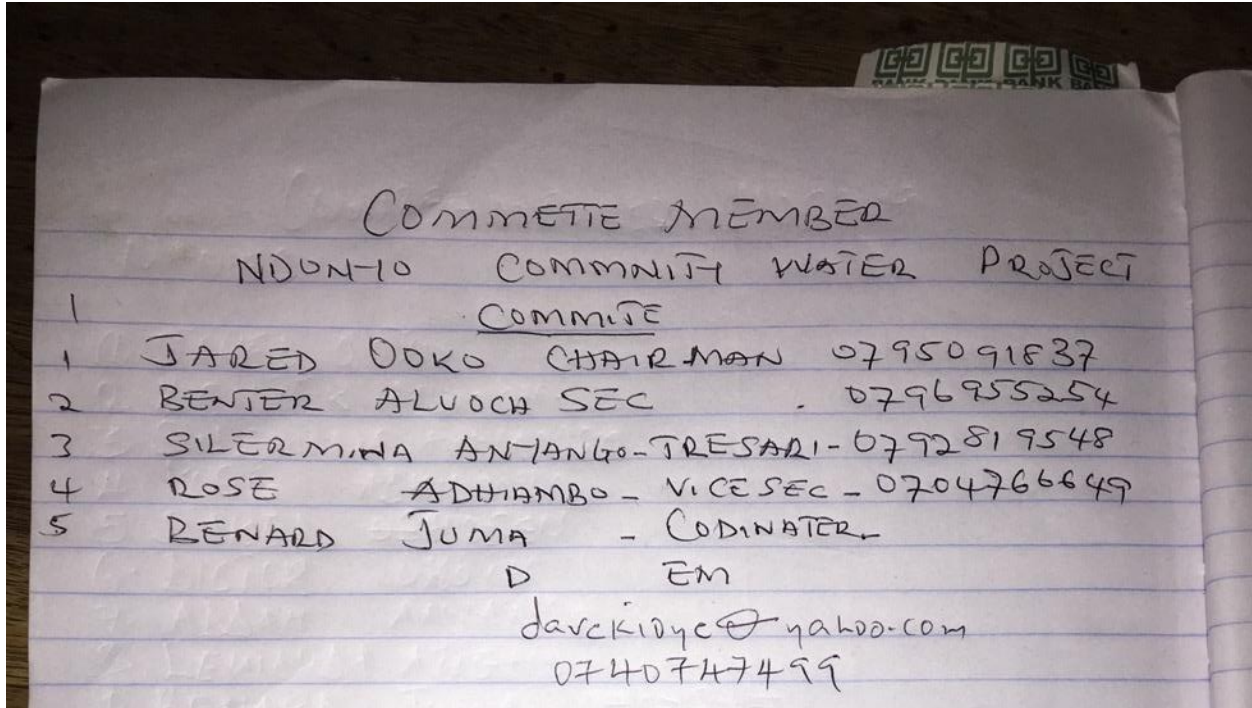 COMMETTE MEMBER
NDUNYO COMMNITY WATER PROJECT
1
COMMITE
1 JARED OOKO CHAIRMAN 0795091837
2 BENTER ALUOCH SEC . 0796955254
3 SILERMINA ANYANGO - TRESARI - 0792819548
4 ROSE ADHIAMBO - VICE SEC - 0704766649
5 BENARD JUMA - CODINATER -
D EM
@yahoo.com
0740747499